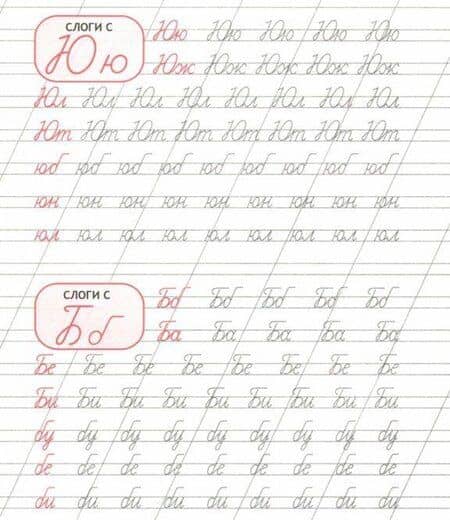 СЛОГИ С
Ю ю
Юю Юю Юю Юю Юю Юю
Юж Юж Юж Юж Юж Юж
Юл Юл Юл Юл Юл Юл Юл Юл
Ют Ют Ют Ют Ют Ют Ют Ют
юб юб юб юб юб юб юб юб юб
юн юн юн юн юн юн юн юн юн
юл юл юл юл юл юл юл юл юл
СЛОГИ С
Б б
Бб Бб Бб Бб Бб
Ба Ба Ба Ба Ба
Бе Бе Бе Бе Бе Бе Бе Бе
Би Би Би Би Би Би Би Би Би
бу бу бу бу бу бу бу бу бу
бе бе бе бе бе бе бе бе бе
би би би би би би би би би